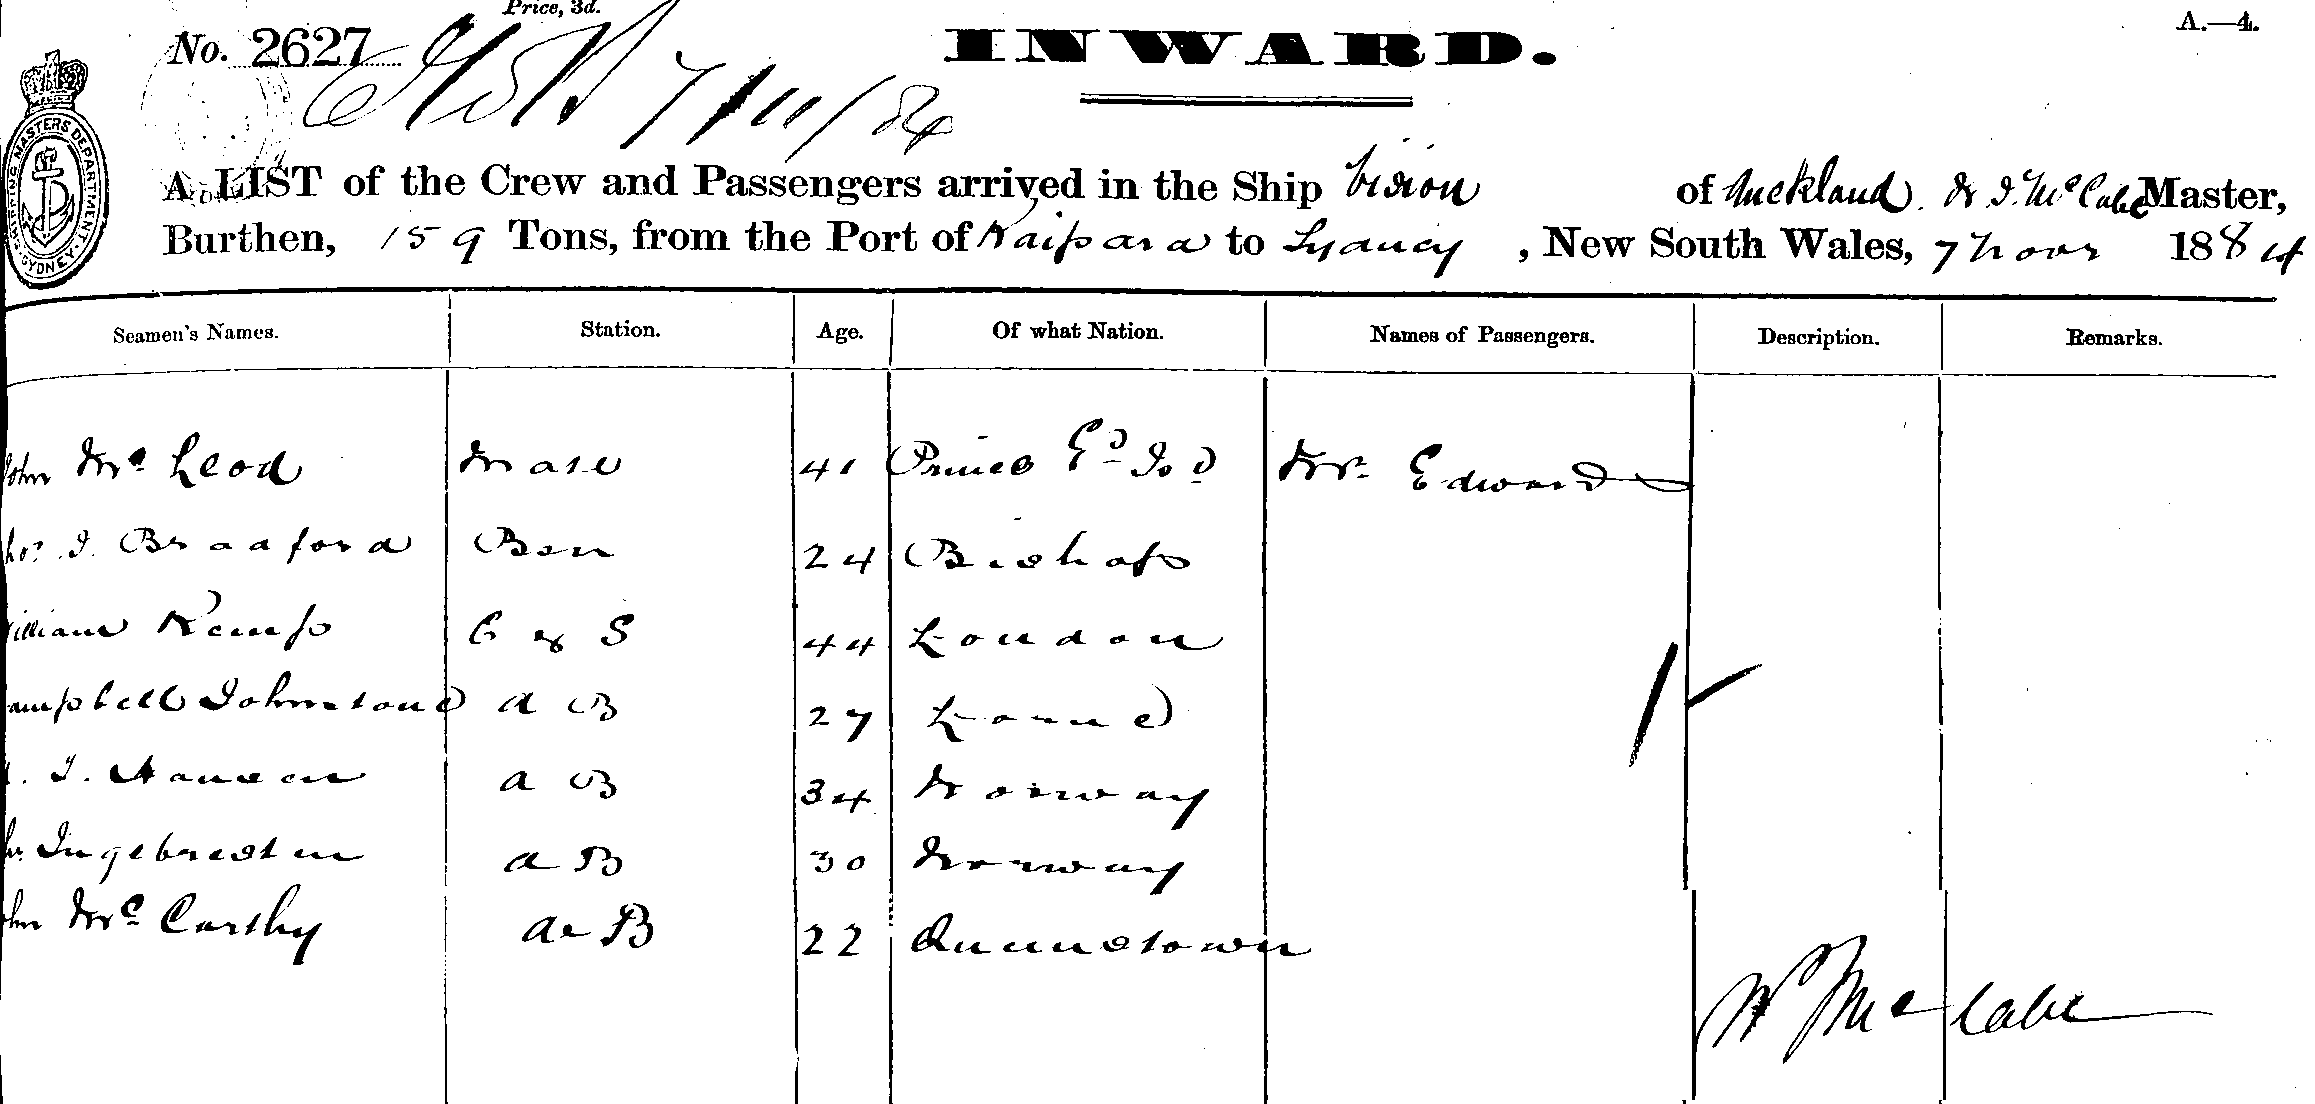 Price, 3d.
No. 2627
INWARD.
A.—4.
7/11/84
SHIPPING MASTERS DEPARTMENT SYDNEY
A LIST of the Crew and Passengers arrived in the Ship Vision of Auckland. W. J. McCabe Master,
Burthen, 159 Tons, from the Port of Kaipara to Sydney, New South Wales, 7 Novr 1884
Seamen's Names. Station. Age. Of what Nation. Names of Passengers. Description. Remarks.
John Mc Leod Mate 41 Prince Ed Isd Mr Edwards
J. Bradford Bsn 24 Bishop
William Kemp C & S 44 London
Campbell Johnstone A B 27 Lorne
J. Hansen A B 34 Norway
Ingebresten A B 30 Norway
John Mc Carthy A B 22 Queenstown
1
W J McCabe